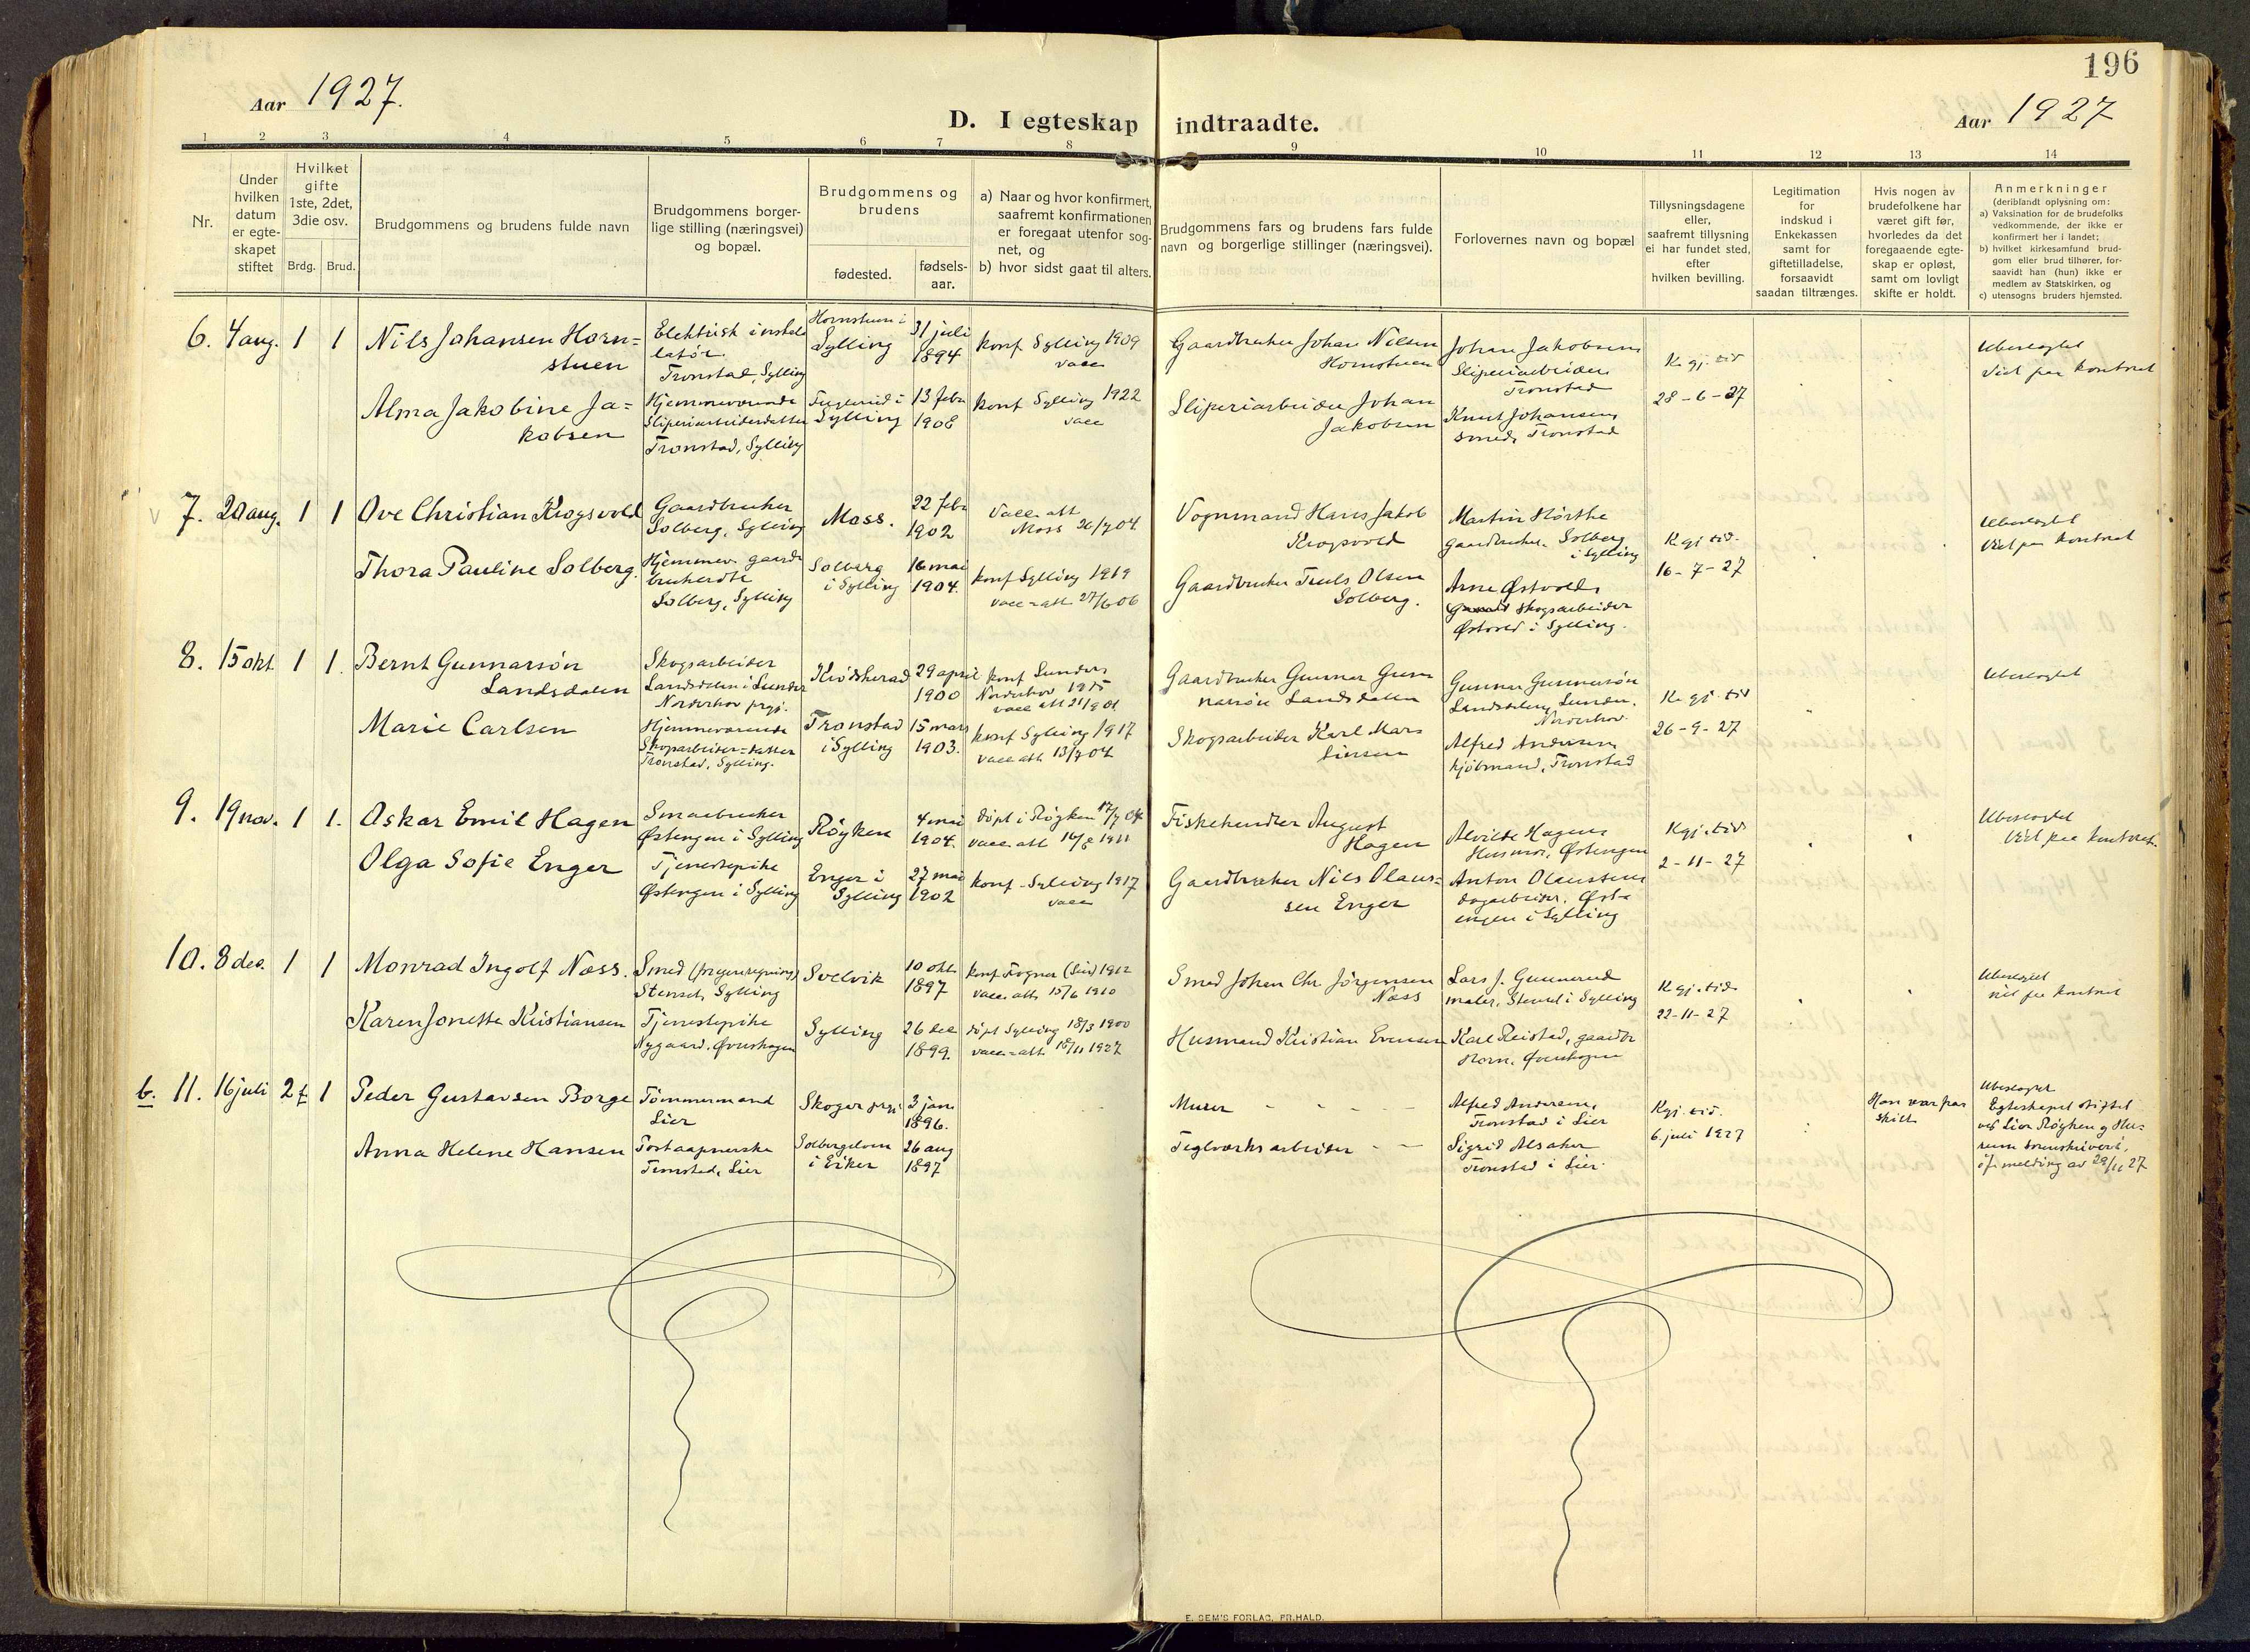 196
Aar 1927.
Aar 1927
D. I egteskap indtraadte.
1 2 3 4 5 6 7 8 9 10 11 12 13 14
Nr.
Under
hvilken
datum
er egte-
skapet
stiftet
Hvilket
gifte
1ste, 2det,
3die osv.
Brdg. Brud.
Brudgommens og brudens fulde navn
Brudgommens borger-
lige stilling (næringsvei)
og bopæl.
Brudgommens og
brudens
fødested.
fødsels-
aar.
a) Naar og hvor konfirmert,
saafremt konfirmationen
er foregaat utenfor sog-
net, og
b) hvor sidst gaat til alters.
Brudgommens fars og brudens fars fulde
navn og borgerlige stillinger (næringsvei).
Forlovernes navn og bopæl
Tillysningsdagene
eller,
saafremt tillysning
ei har fundet sted,
efter
hvilken bevilling.
Legitimation
for
indskud i
Enkekassen
samt for
giftetilladelse,
forsaavidt
saadan tiltrænges.
Hvis nogen av
brudefolkene har
været gift før,
hvorledes da det
foregaaende egte-
skap er opløst,
samt om lovligt
skifte er holdt.
Anmerkninger
(deriblandt oplysning om:
a) Vaksination for de brudefolks
vedkommende, der ikke er
konfirmert her i landet;
b) hvilket kirkesamfund brud-
gom eller brud tilhører, for-
saavidt han (hun) ikke er
medlem av Statskirken, og
c) utensogns bruders hjemsted.
6. 4 aug. 1 1
Nils Johansen Horn=
stuen
Elektrisk instal
latør.
Tronstad, Sylling
Hornstuen i
Sylling
31 juli
1894
konf Sylling 1909
vacc
Gaardbruker Johan Nilsen
Hornstuen
Johan Jakobsen
Sliperiarbeider
Tronstad
Kgj. tid
28-6-27
Ubeslegtet
Viet paa kontoret
Alma Jakobine Ja=
kobsen
Hjemmeværende
Sliperiarbeiderdatter
Tronstad, Sylling
Fuglerud i
Sylling
13 febr
1908
konf Sylling 1922
vacc
Sliperiarbeider Johan
Jakobsen
Knut Johansen
smed, Tronstad
7. 20 aug. 1 1
Ove Christian Krogsvold
Gaardbruker
Solberg, Sylling
Moss.
22 febr
1902
Vacc. att
Moss 26/7 04
Vognmand Hans Jakob
Krogsvold
Martin Hørthe
gaardbruker. Solberg
i Sylling
Kgj tid.
16-7-27
Ubeslegtet
Viet paa kontoret
Thora Pauline Solberg.
Hjemmev. gaard
brukerdtr
Solberg, Sylling
Solberg
i Sylling
16 mai
1904.
konf Sylling 1919
vacc=att 27/6 06
Gaardbruker Truls Olsen
Solberg.
Arne Østvold,
skogsarbeider
Østvold i Sylling.
8. 15 okt 1 1.
Bernt Gunnarsøn
Landsdalen
Skogsarbeider
Landsdalen i Lunder
Norderhov prgj.
Krødsherad
29 april
1900
konf Lunder,
Norderhov 1915
vacc att 21/9 01
Gaardbruker Gunnar Gun
narsøn Landsdalen
Gunnar Gunnarsøn
Landsdalen, Lunder.
Norderhov.
Kgj. tid
26-9-27
Ubeslegtet
Marie Carlsen
Hjemmeværende
Skogsarbeider=datter
Tronstad, Sylling.
Tronstad
i Sylling
15 mars
1903.
konf Sylling 1917
vacc att 13/7 04
Skogsarbeider Karl Mar
Alfred Andersen,
kjøbmand, Tronstad
9. 19 nov. 1 1.
Oskar Emil Hagen
Smaabruker
Østengen i Sylling
Røyken
4 mai
1904.
døpt i Røyken 17/7 04
vacc att 14/8 1911
Fiskehandler August
Hagen
Alvilde Hagen,
Husmor, Østengen
Kgj. tid
2-11-27
Ubeslegtet
Viet paa kontoret.
Olga Sofie Enger
Tjenestepike
Østengen i Sylling
Enger i
Sylling
27 mai
1902
konf. Sylling 1917
vacc
Gaardbruker Nils Olaus=
sen Enger
Anton Olaussen
dagarbeider, Øst=
engen i Sylling
10. 8 des. 1 1
Monrad Ingolf Næss.
Smed (for egen regning)
Stenset, Sylling
Svelvik
10 okt.
1897
konf Frogner (Lier) 1912
vacc=att. 15/6 1910
Smed Johan Chr. Jørgensen
Næss
Lars J. Gunnerud
maler, Stenset i Sylling
Kgj. tid
22-11-27
Ubeslegtet
viet paa kontoret
Karen Jonette Kristiansen
Tjenestepike
Nygaard, Øvershagen
Sylling
26 des
1899.
døpt Sylling 18/3 1900
vacc=att. 18/11 1927
Husmand Kristian Evensen
Karl Reistad, gaardbr
Horn, Øvershagen
b. 11. 16 juli 2 f. 1
Peder Gustavsen Borge
Tømmermand
Lier
Skoger prgj.
3 jan.
1896.
Murer - - - -
Alfred Andersen,
Tronstad i Lier
Kgj. tid.
6. juli 1927
Han var fra
skilt
Ubeslegtet
Egteskapet stiftet
ved Lier Røyken og Hu-
rum sorenskriveri,
if. melding av 29/11 27
Anna Helene Hansen
Postaapnerske
Tronstad, Lier
Solbergelven
i Eiker
26 aug
1897
Teglverksarbeider - -
Sigrid Alsaker
Tronstad i Lier.
E. SEM'S FORLAG, FR.HALD.